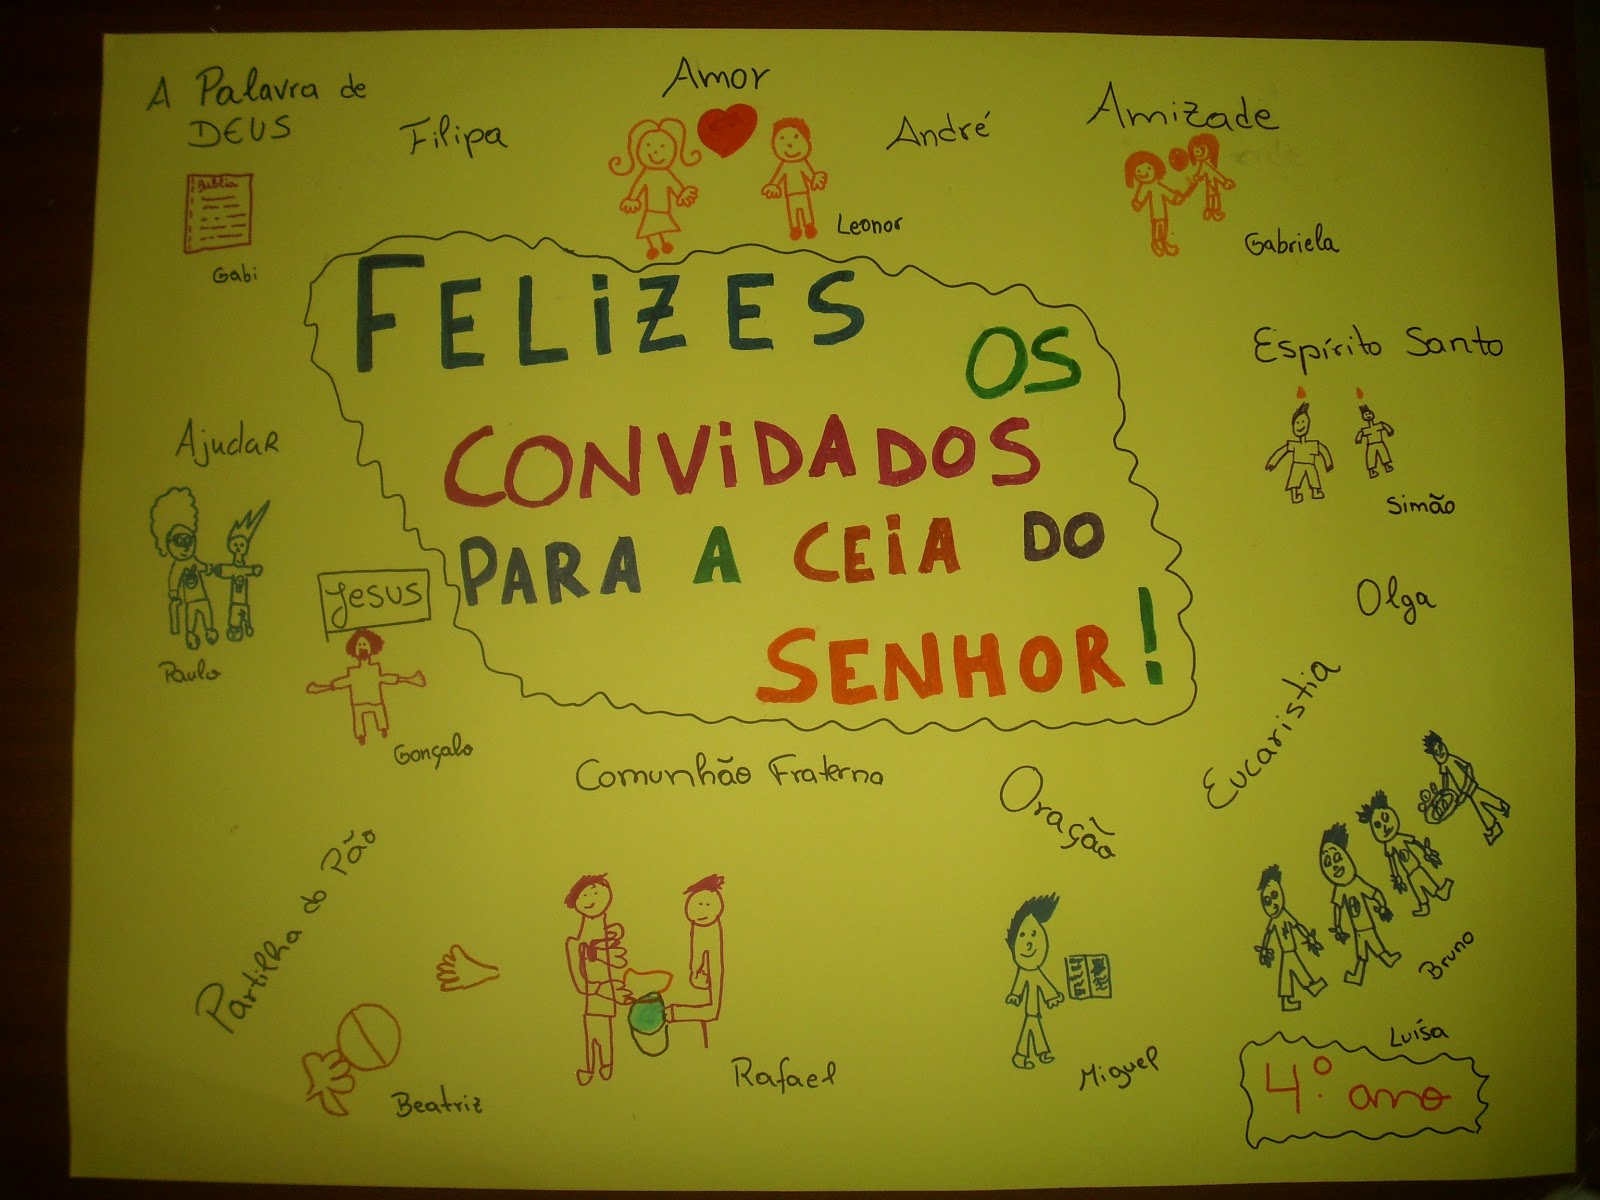 A Palavra de
DEUS
Biblia
Gabi
Filipa
Amor
Leonor
André
Amizade
Gabriela
FELiZES
OS
CONViDADOS
PARA A CEiA DO
SENHOR!
Espírito Santo
Simão
Ajudar
Paulo
Jesus
Gonçalo
Olga
Comunhão Fraterna
Rafael
Oração
Miguel
Eucaristia
Bruno
Partilha do Pão
Beatriz
Luísa
4.º ano